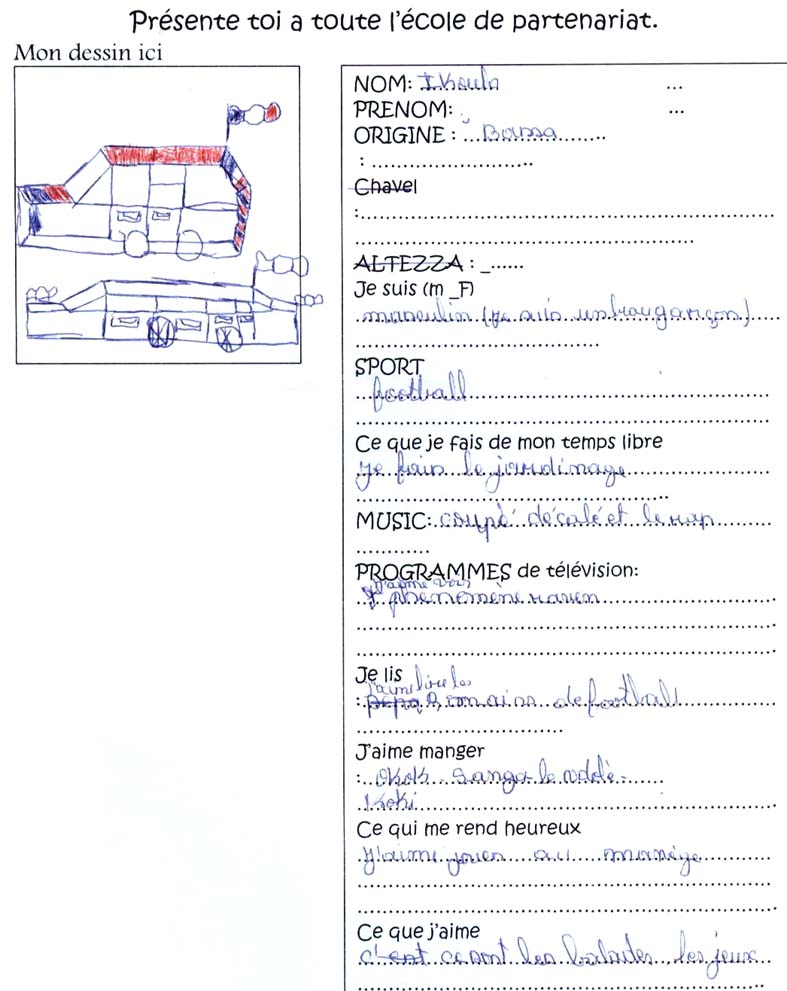 Présente toi a toute l'école de partenariat.
Mon dessin ici
NOM: I Koula ...
PRENOM: ...
ORIGINE : ... Bamsa ...
: ...
Chavel
: ...
ALTEZZA : _......
Je suis (m _F)
masculin (je suis un brau garçon)
SPORT
football
Ce que je fais de mon temps libre
je fain le jardinage
MUSIC: coupé décalé et le rap
PROGRAMMES de télévision:
J'aime voir
phenomène raven
Je lis
J'aime lire les
: romains de football
J'aime manger
: Okok Sanga le ndolè
Koki
Ce qui me rend heureux
J'aime jouer au manège
Ce que j'aime
c'est ce sont les balades les jeux